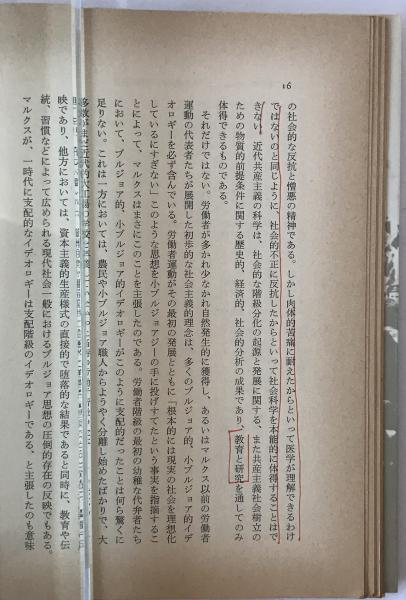 16
の社会的な反抗と憎悪の精神である。しかし肉体的苦痛に耐えたからといって医学が理解できるわけ
ではないのと同じように、社会的不正に反抗したからといって社会科学を本能的に体得することはで
きない。近代共産主義の科学は、社会的な階級分化の起源と発展に関する、また共産主義社会樹立の
ための物質的前提条件に関する歴史的、経済的、社会的分析の成果であり、教育と研究を通してのみ
体得できるものである。
それだけではない。労働者が多かれ少なかれ自然発生的に獲得し、あるいはマルクス以前の労働者
運動の代表者たちが展開した初歩的な社会主義的理念は、多くのブルジョア的、小ブルジョア的イデ
オロギーを必ず含んでいる。労働者運動がその最初の発展とともに「根本的には現実の社会を理想化
しているにすぎない」このような思想を小ブルジョアジーの手に投げすてたという事実を指摘するこ
とによって、マルクスはまさにこのことを主張したのである。労働者階級の最初の幼稚な代弁者たち
において、ブルジョア的、小ブルジョア的イデオロギーがこのように支配的だったことは何ら驚くに
足りない。これは一方においては、農民や小ブルジョア職人からようやく分離し始めたばかりで、大
映であり、他方においては、資本主義的生産様式の直接的で堕落的な結果であると同時に、教育や伝
統、習慣などによって広められる現代社会一般におけるブルジョア思想の圧倒的存在の反映でもある。
マルクスが、一時代に支配的なイデオロギーは支配階級のイデオロギーである、と主張したのも意味